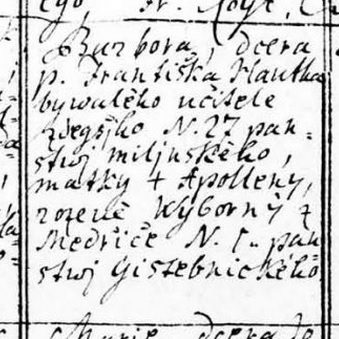 Barbora, dcera
p. Františka Hautka
bywalého učitele
zdegsjho N. 27 pan-
stwj miljnského,
matky + Apolleny,
rozené Wyborný z
Medřiče N. 5. pan
stwj Gistebnického
Marie dcera